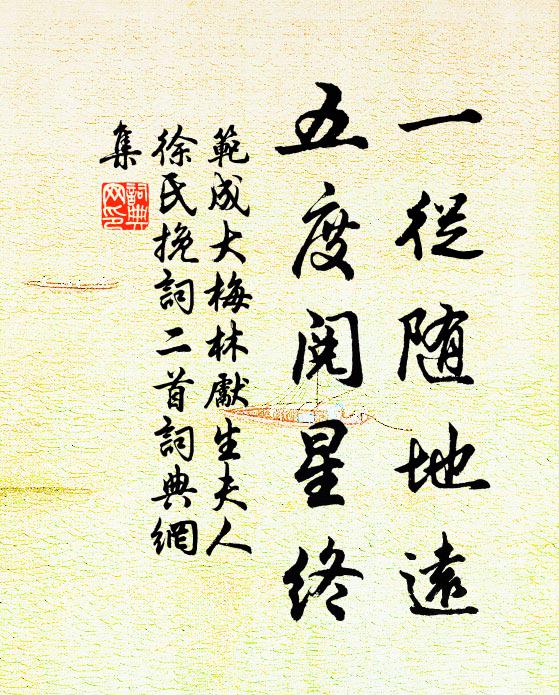 一從随地遠
五度閱星終
範成大梅林獻生夫人
徐氏挽詞二首詞典網
集
詞典
网印